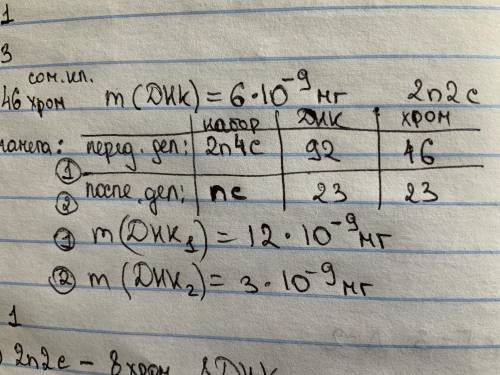 1
3
сом.кл.
46 хром m(ДНК) = 6·10⁻⁹ мг 2n2c
набор ДНК хром
перед. дел: 2n4c 92 46
①
② после. дел: nc 23 23
① m(ДНК₁) = 12·10⁻⁹ мг
② m(ДНК₂) = 3·10⁻⁹ мг
1
2n2c – 8 хром 8 ДНК